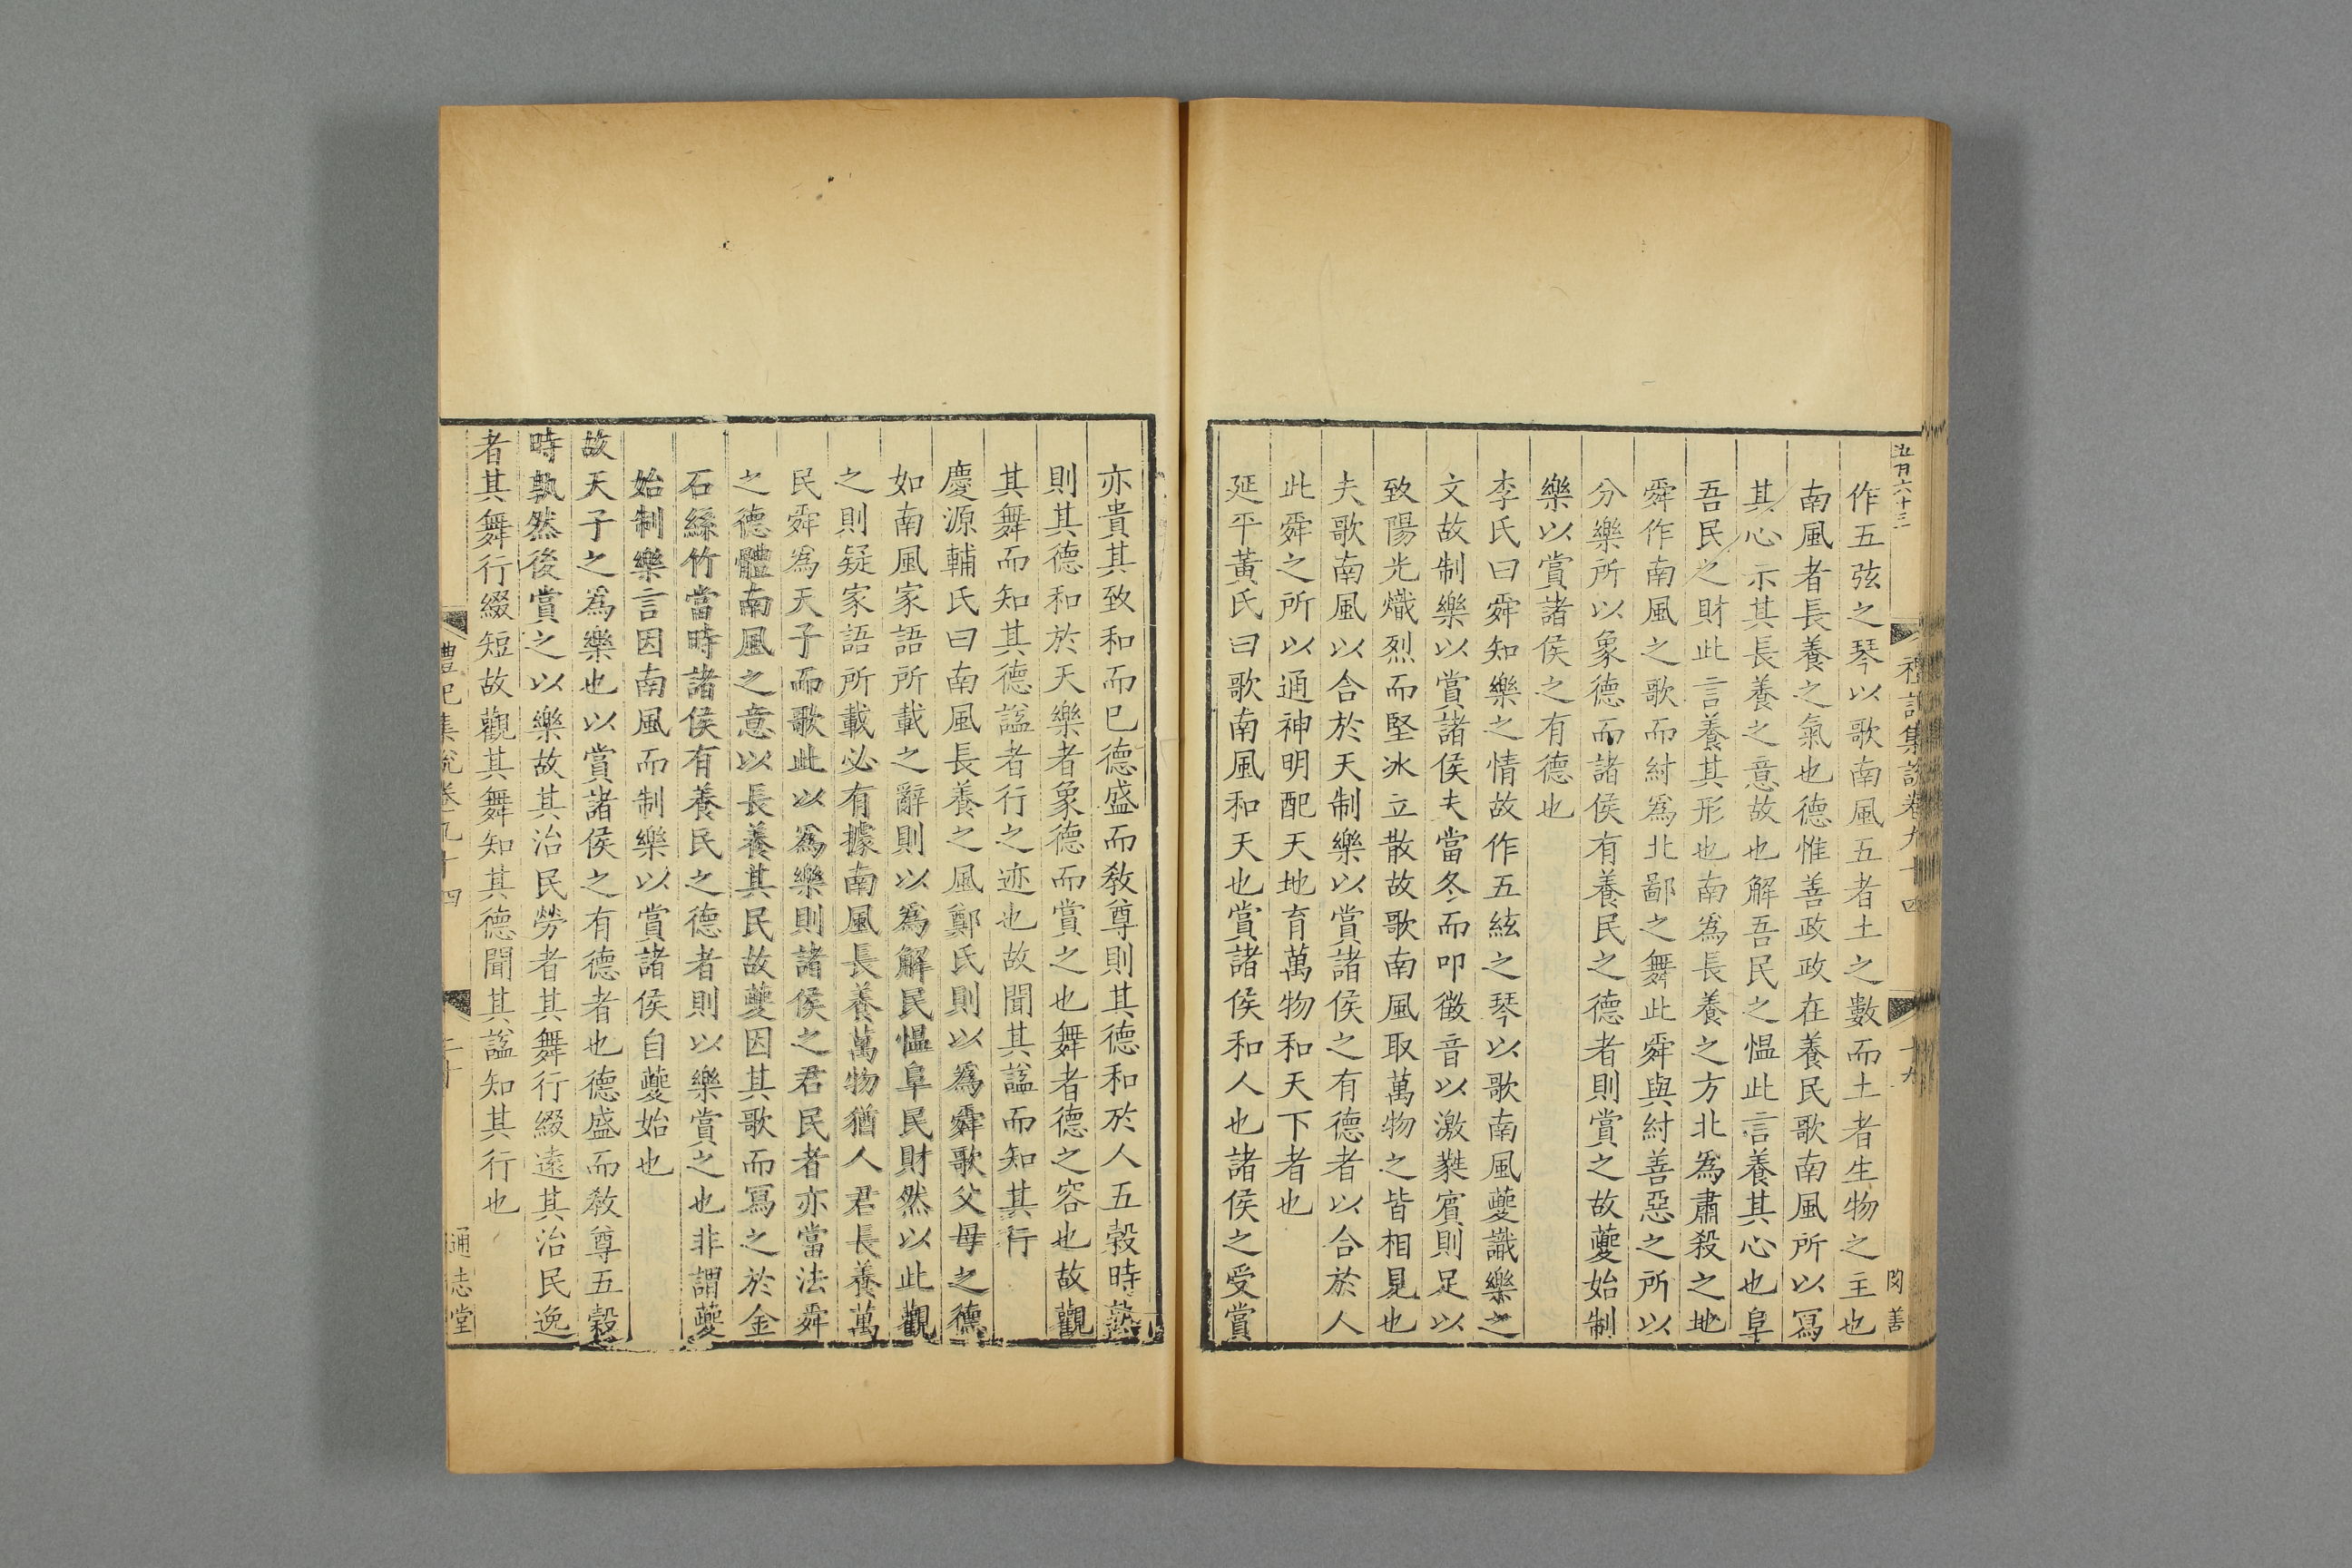 五百六十三
禮記集說卷九十四
十九
閔善
作五弦之琴以歌南風五者土之數而土者生物之主也
南風者長養之氣也德惟善政政在養民歌南風所以寫
其心示其長養之意故也解吾民之愠此言養其心也阜
吾民之財此言養其形也南爲長養之方北爲肅殺之地
舜作南風之歌而紂爲北鄙之舞此舜與紂善惡之所以
分樂所以象德而諸侯有養民之德者則賞之故夔始制
樂以賞諸侯之有德也
李氏曰舜知樂之情故作五絃之琴以歌南風夔識樂之
文故制樂以賞諸侯夫當冬而叩徵音以激蕤賓則足以
致陽光熾烈而堅冰立散故歌南風取萬物之皆相見也
夫歌南風以合於天制樂以賞諸侯之有德者以合於人
此舜之所以通神明配天地育萬物和天下者也
延平黃氏曰歌南風和天也賞諸侯和人也諸侯之受賞
亦貴其致和而已德盛而敎尊則其德和於人五穀時熟
則其德和於天樂者象德而賞之也舞者德之容也故觀
其舞而知其德諡者行之迹也故聞其諡而知其行
慶源輔氏曰南風長養之風鄭氏則以爲舜歌父母之德
如南風家語所載之辭則以爲解民愠阜民財然以此觀
之則疑家語所載必有據南風長養萬物猶人君長養萬
民舜爲天子而歌此以爲樂則諸侯之君民者亦當法舜
之德體南風之意以長養其民故夔因其歌而寫之於金
石絲竹當時諸侯有養民之德者則以樂賞之也非謂夔
始制樂言因南風而制樂以賞諸侯自夔始也
故天子之爲樂也以賞諸侯之有德者也德盛而敎尊五穀
時孰然後賞之以樂故其治民勞者其舞行綴遠其治民逸
者其舞行綴短故觀其舞知其德聞其諡知其行也
禮記集說卷九十四
二十
通志堂